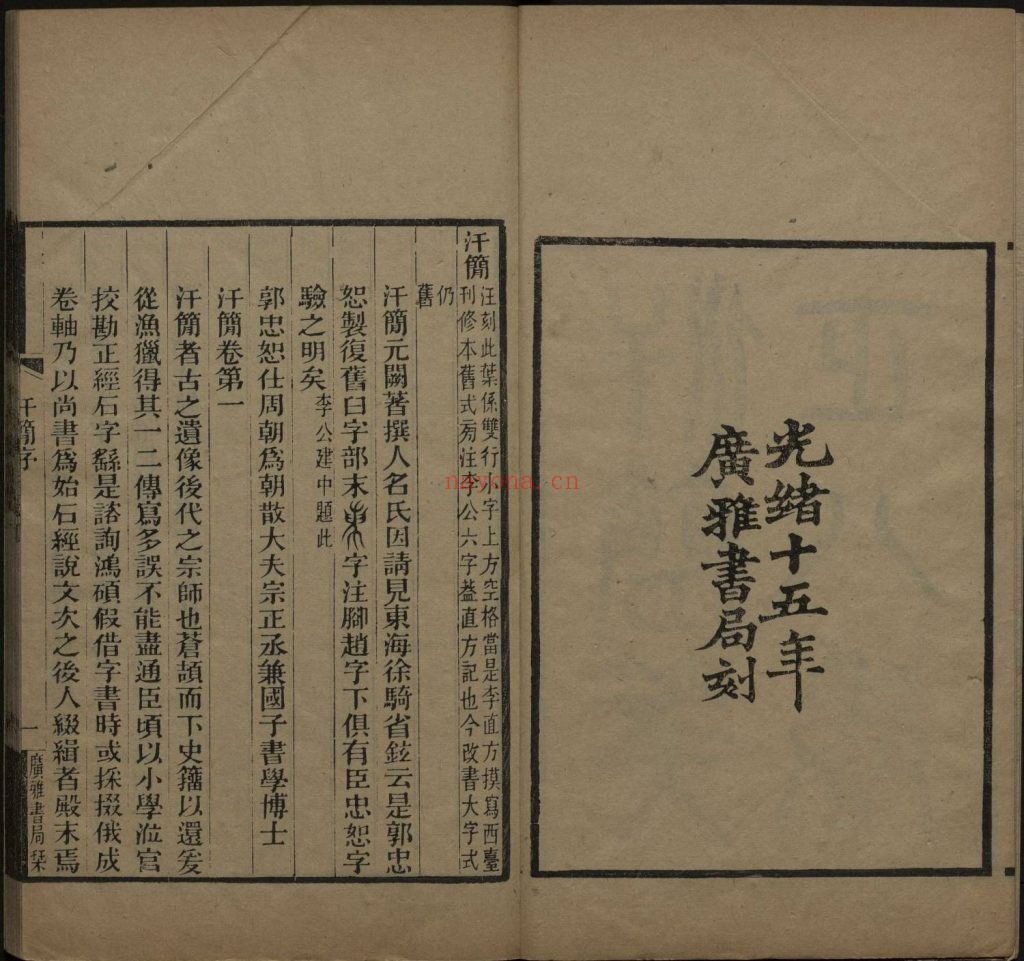 光緒十五年
廣雅書局刻
汗簡 汪刻此葉係雙行小字上方空格當是李直方摸寫西臺
刊修本舊式旁注李公六字葢直方記也今改書大字式
仍
舊
汗簡元闕著撰人名氏因請見東海徐騎省鉉云是郭忠
恕製復舊臼字部末字注腳趙字下俱有臣忠恕字
驗之明矣 李公建中題此
郭忠恕仕周朝爲朝散大夫宗正丞兼國子書學博士
汗簡卷第一
汗簡者古之遺像後代之宗師也蒼頡而下史籒以還爰
從漁獵得其一二傳寫多誤不能盡通臣頃以小學涖官
挍勘正經石字繇是諮詢鴻碩假借字書時或採掇俄成
卷軸乃以尚書爲始石經說文次之後人綴緝者殿末焉
汗簡序
一
廣雅書局栞
nayona.cn